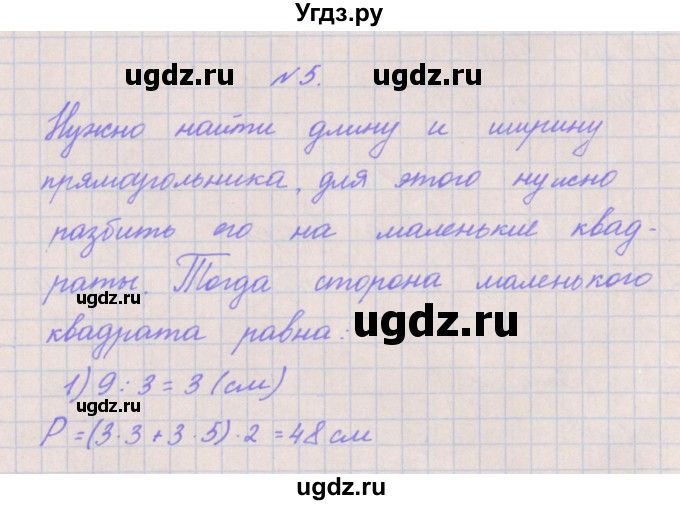 Угдз.ру
ugdz.ru № 5. ugdz.ru
Нужно найти длину и ширину
прямоугольника, для этого нужно
разбить его на маленькие квад-
раты. Тогда сторона маленького
ugdz.ru
квадрата равна: ugdz.ru
1) 9 : 3 = 3 (см)
ugdz.ru
P = (3 · 3 + 3 · 5) · 2 = 48 см
ugdz.ru